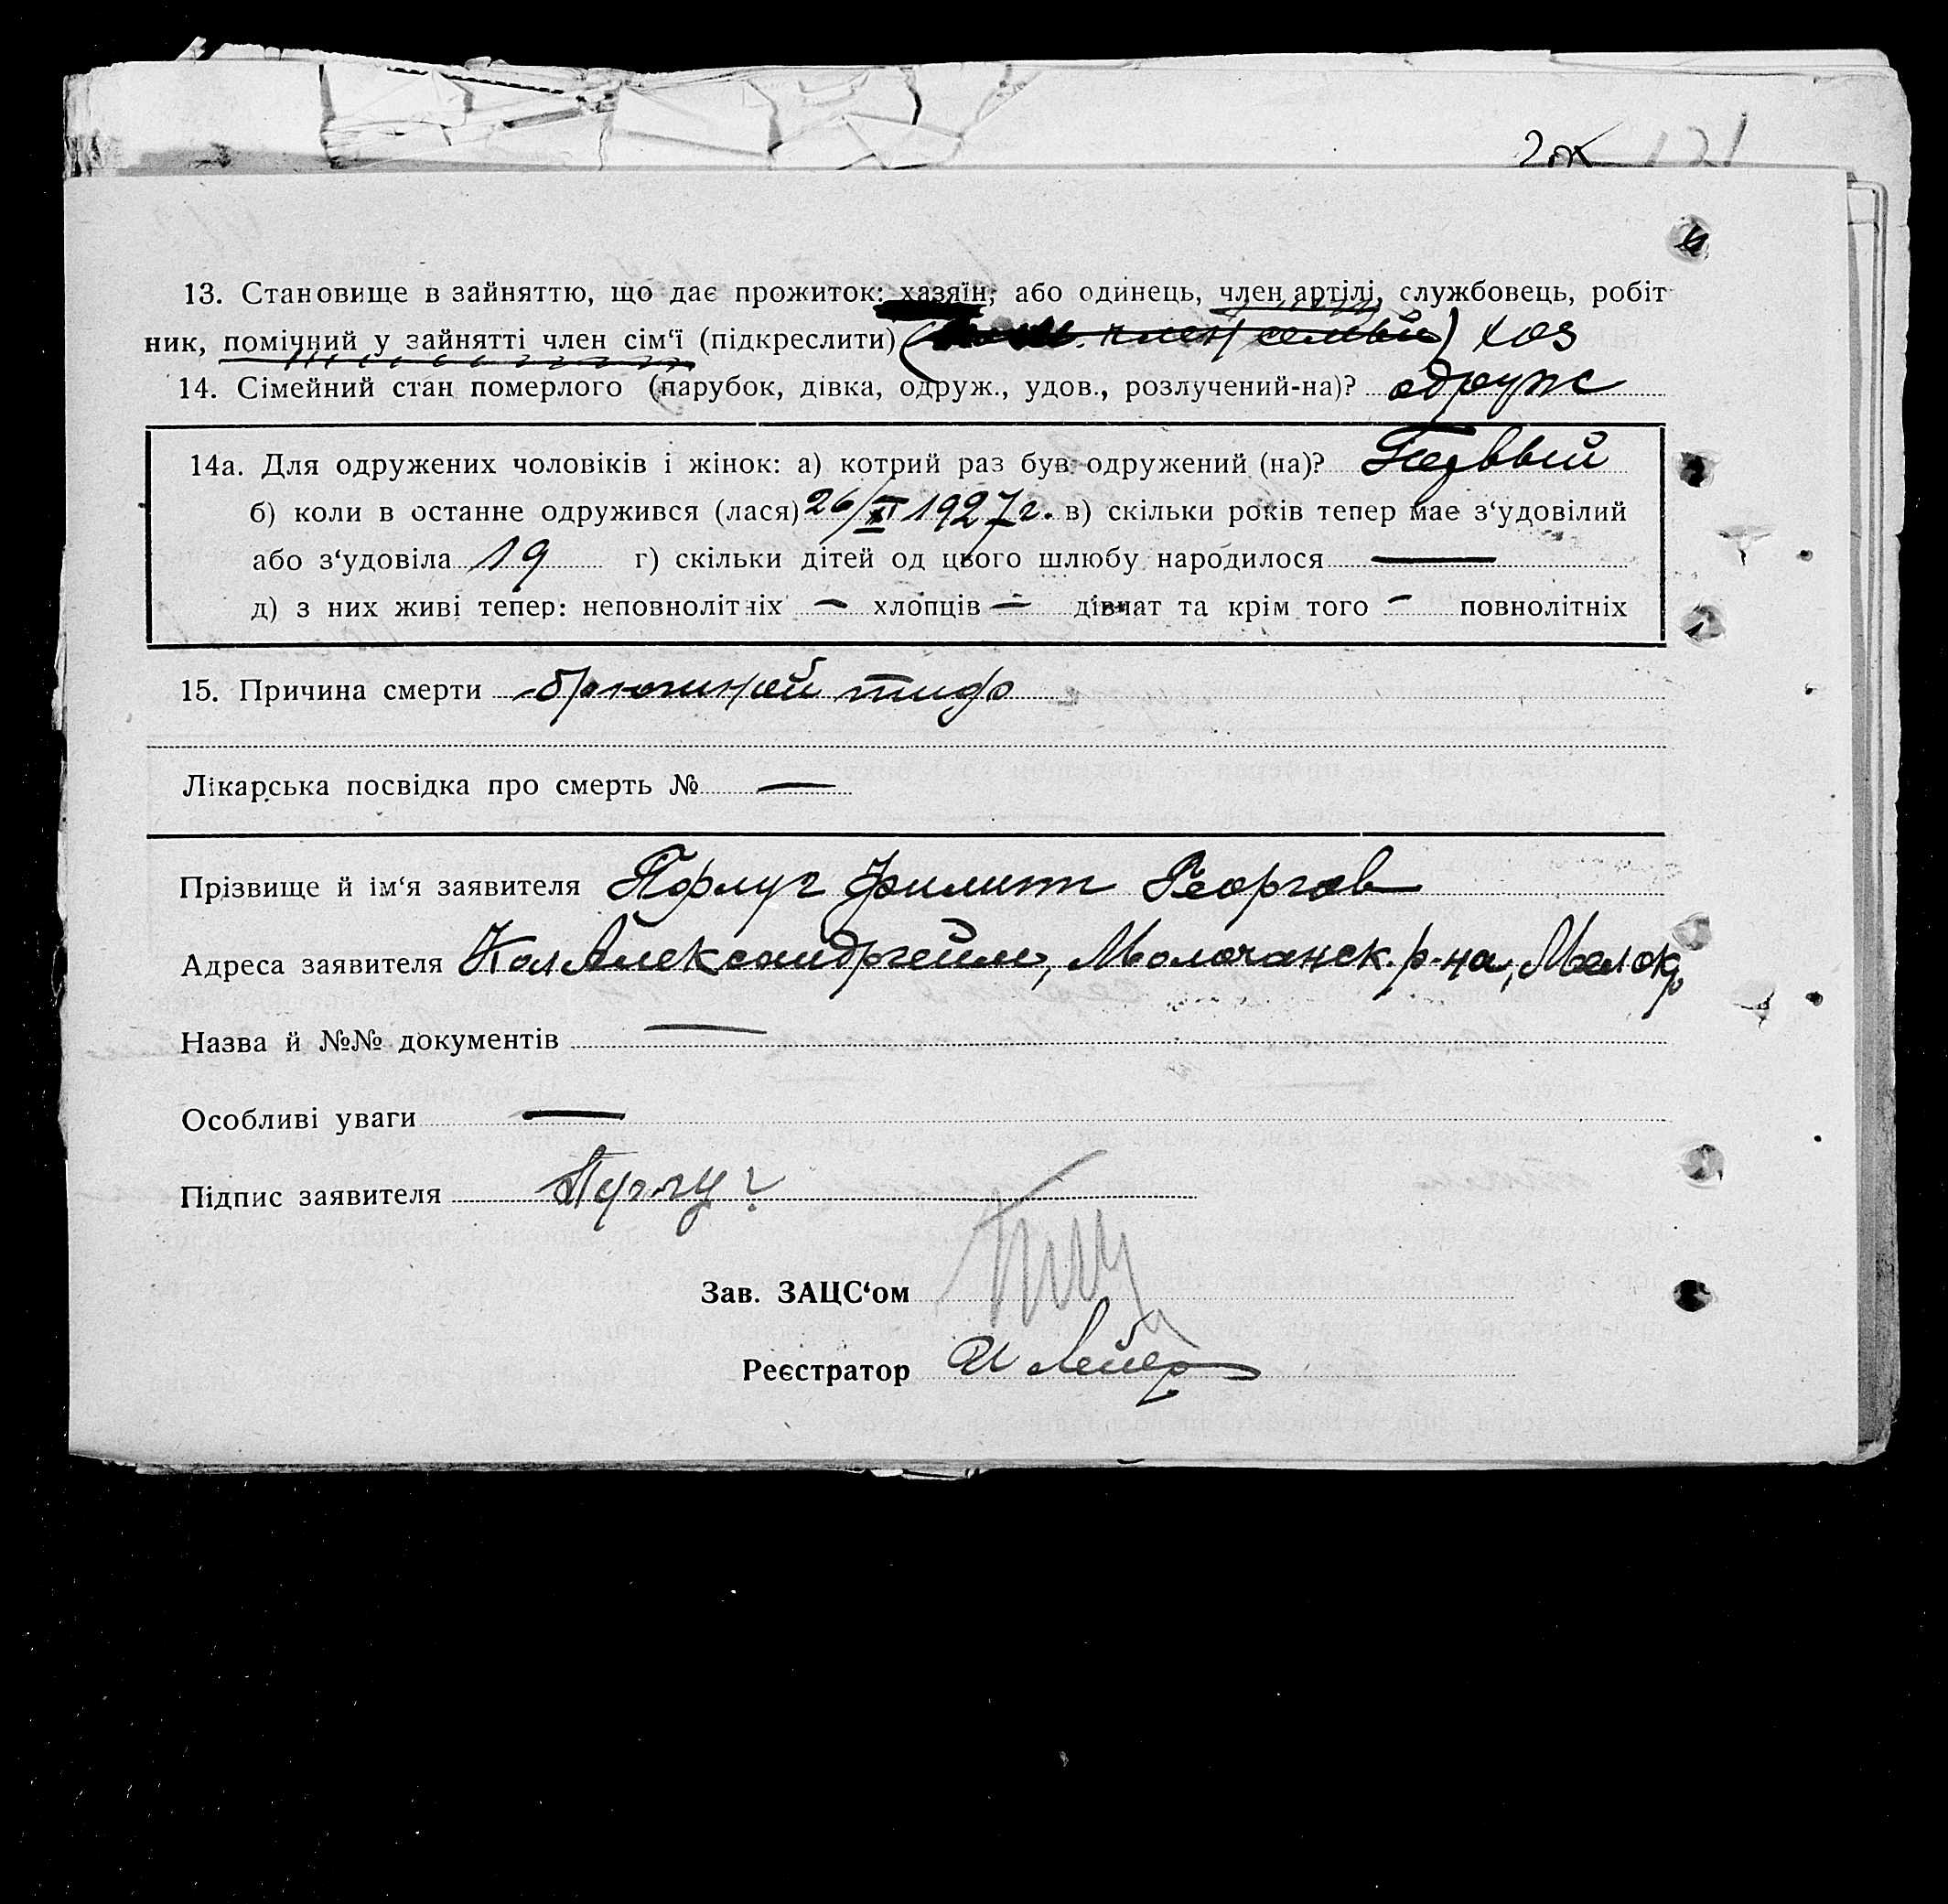 13. Становище в зайняттю, що дає прожиток: хазяїн, або одинець, член артілі, службовець, робіт
ник, помічний у зайнятті член сім‘ї (підкреслити) ( член семьи) хоз
14. Сімейний стан померлого (парубок, дівка, одруж., удов., розлучений-на)? одруж
14а. Для одружених чоловіків і жінок: а) котрий раз був одружений (на)? Первый
б) коли в останнє одружився (лася) 26/XI 1927 г. в) скільки років тепер має з‘удовілий
або з‘удовіла 19 г) скільки дітей од цього шлюбу народилося —
д) з них живі тепер: неповнолітніх — хлопців — дівчат та крім того — повнолітніх
15. Причина смерти брюшной тиф
Лікарська посвідка про смерть № —
Прізвище й ім‘я заявителя Пфлуг Филипп Георгов
Адреса заявителя Кол Александргейм, Молочанск. р-на, Мелокр
Назва й №№ документів —
Особливі уваги —
Підпис заявителя Пфлуг
Зав. ЗАЦС‘ом
Реєстратор И Лейер